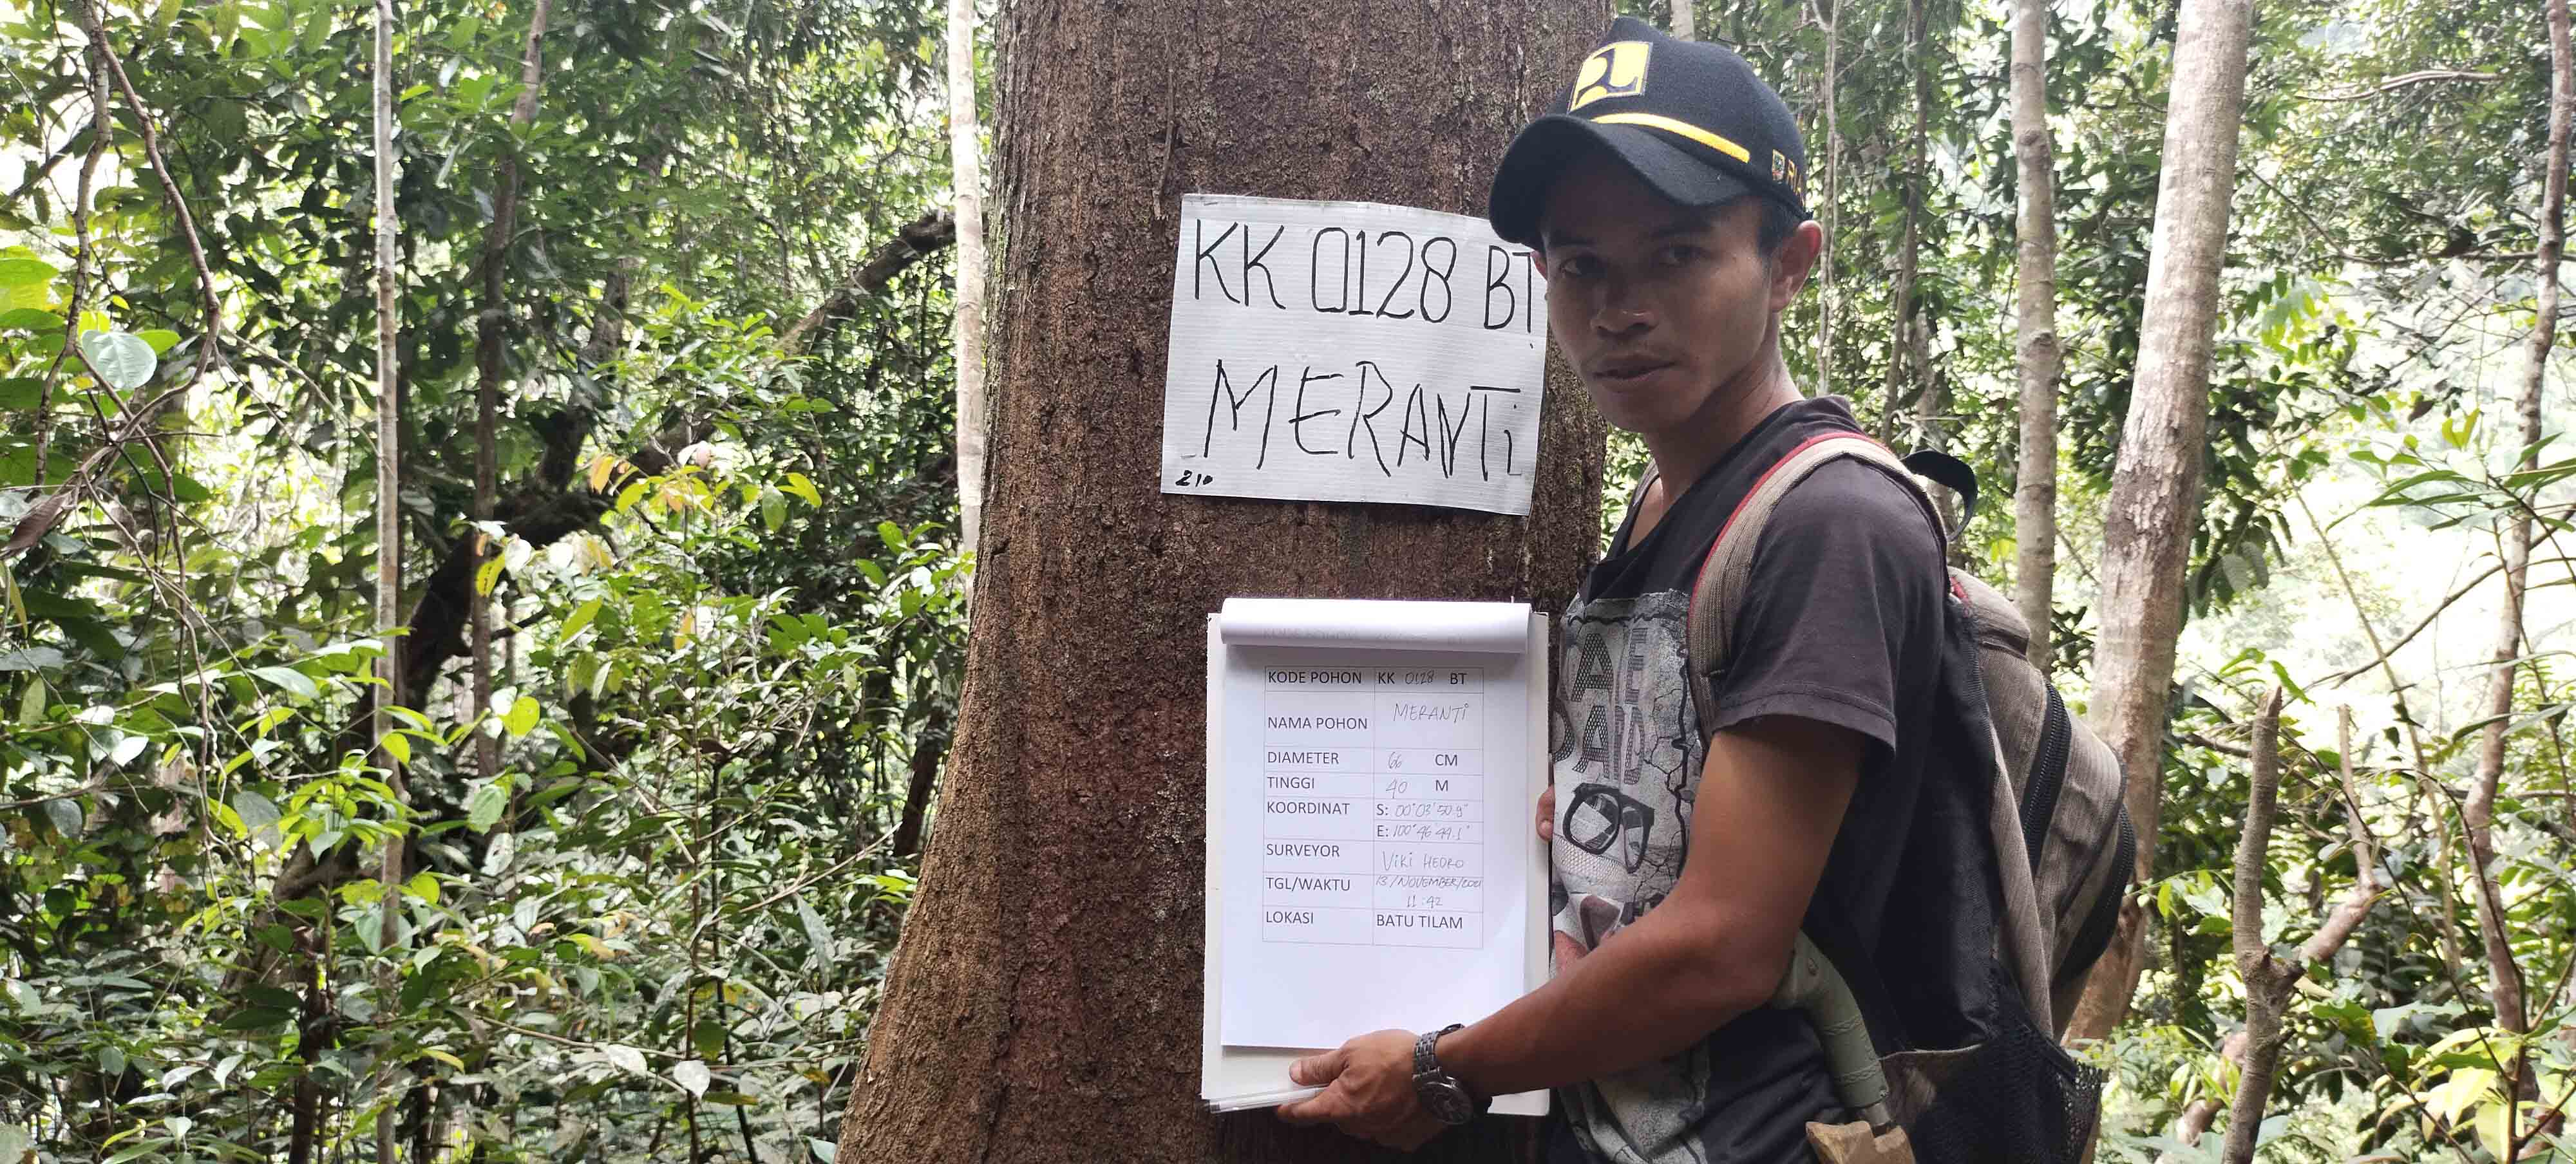 KK 0128 BT
MERANTi
210
KODE POHON KK 0128 BT
NAMA POHON MERANTi
DIAMETER 66 CM
TINGGI 40 M
KOORDINAT S: 00°03'50.9"
E: 100°46'44.1"
SURVEYOR ViKi HEORO
TGL/WAKTU 13/NOVEMBER/2021
11:42
LOKASI BATU TILAM